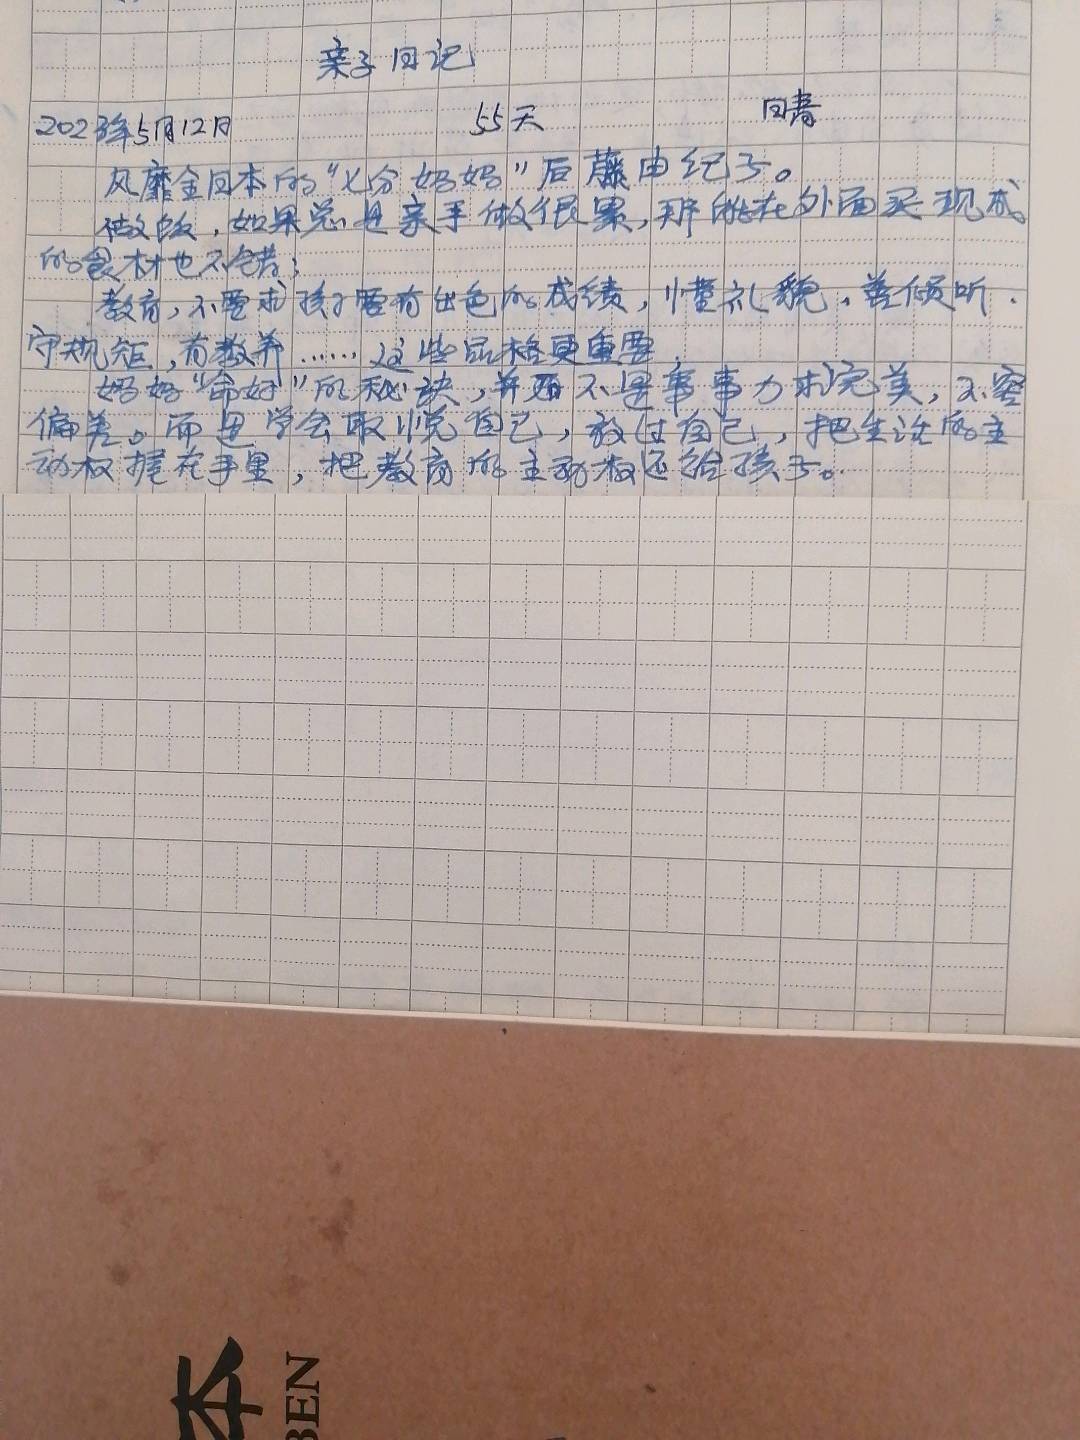 亲子日记
2023年5月12日 55天
风靡全日本的“七分妈妈”后藤由纪子。
做饭，如果总是亲手做很累，那就在外面买现成
的食材也不错；
教育，不要求孩子要有出色的成绩，懂礼貌，善倾听．
守规矩，有教养……这些品格更重要，
妈妈“命好”的秘诀，并不是事事力求完美，不容
偏差。而是学会取悦自己，放过自己，把生活的主
动权握在手里，把教育的主动权还给孩子。
本
BEN